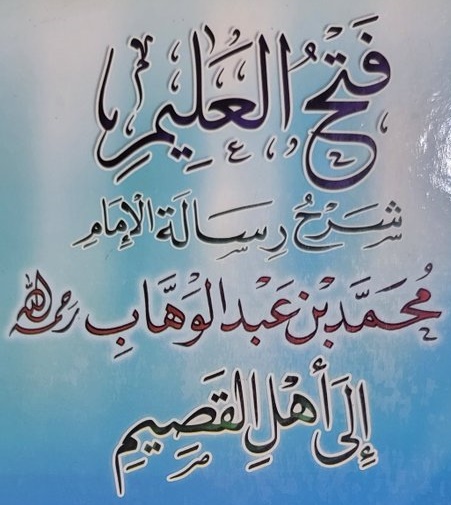 فَتْحُ العَلِيمِ
شَرْحُ رِسَالَةِ الإِمَامِ
مُحَمَّدِ بْنِ عَبْدِ الوَهَّابِ رَحِمَهُ اللهُ
إِلَى أَهْلِ القَصِيمِ